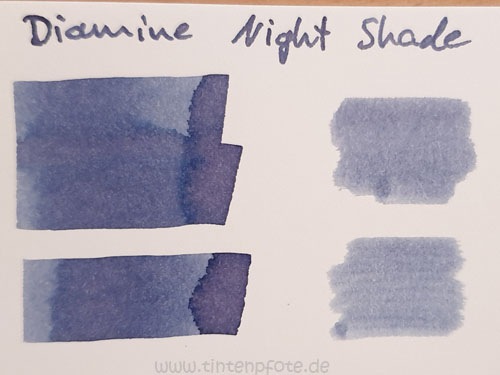 Diamine Night Shade
www.tintenpfote.de